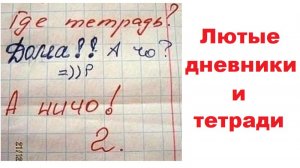 Где тетрадь?
Дома!! А чо?
=))Р
А ничо!
2.
Лютые
дневники
и
тетради